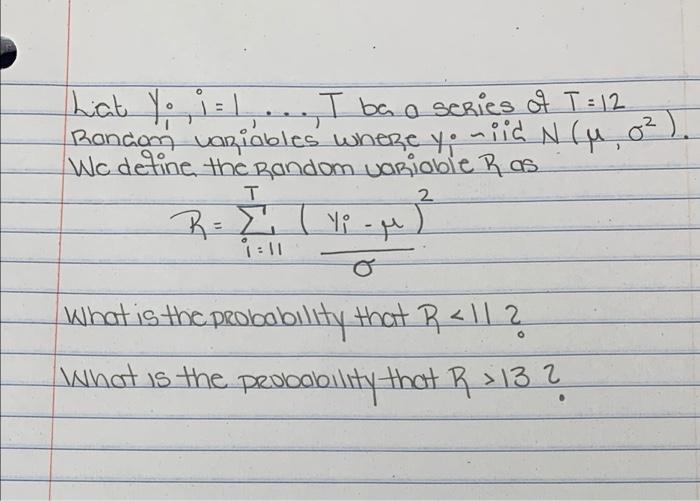 Liat Yi, i=1, ..., T ba a series of T=12
Random variables where yi ~iid N(μ, σ²).
We define the Random variable R as
T
R = Σ ( yi - μ )²
i=11 σ
What is the probability that R < 11 ?
What is the probability that R > 13 ?